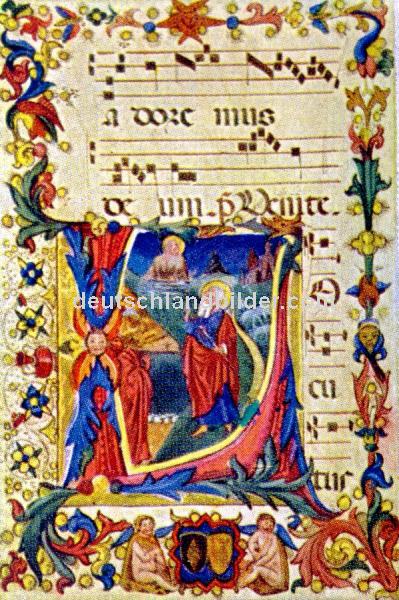 a dore mus
de um. p̄ Venite.
deutschlandbilder.com
L o
cu
tus